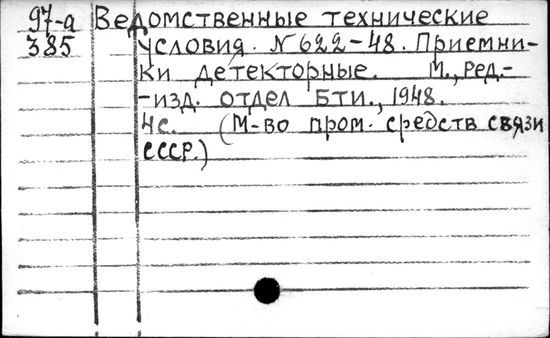 97-а Ведомственные технические
385 условия. N 622-48. Приемни-
ки детекторные. М., Ред.-
-изд. отдел БТИ., 1948.
4с. (М-во пром. средств связи
СССР.)